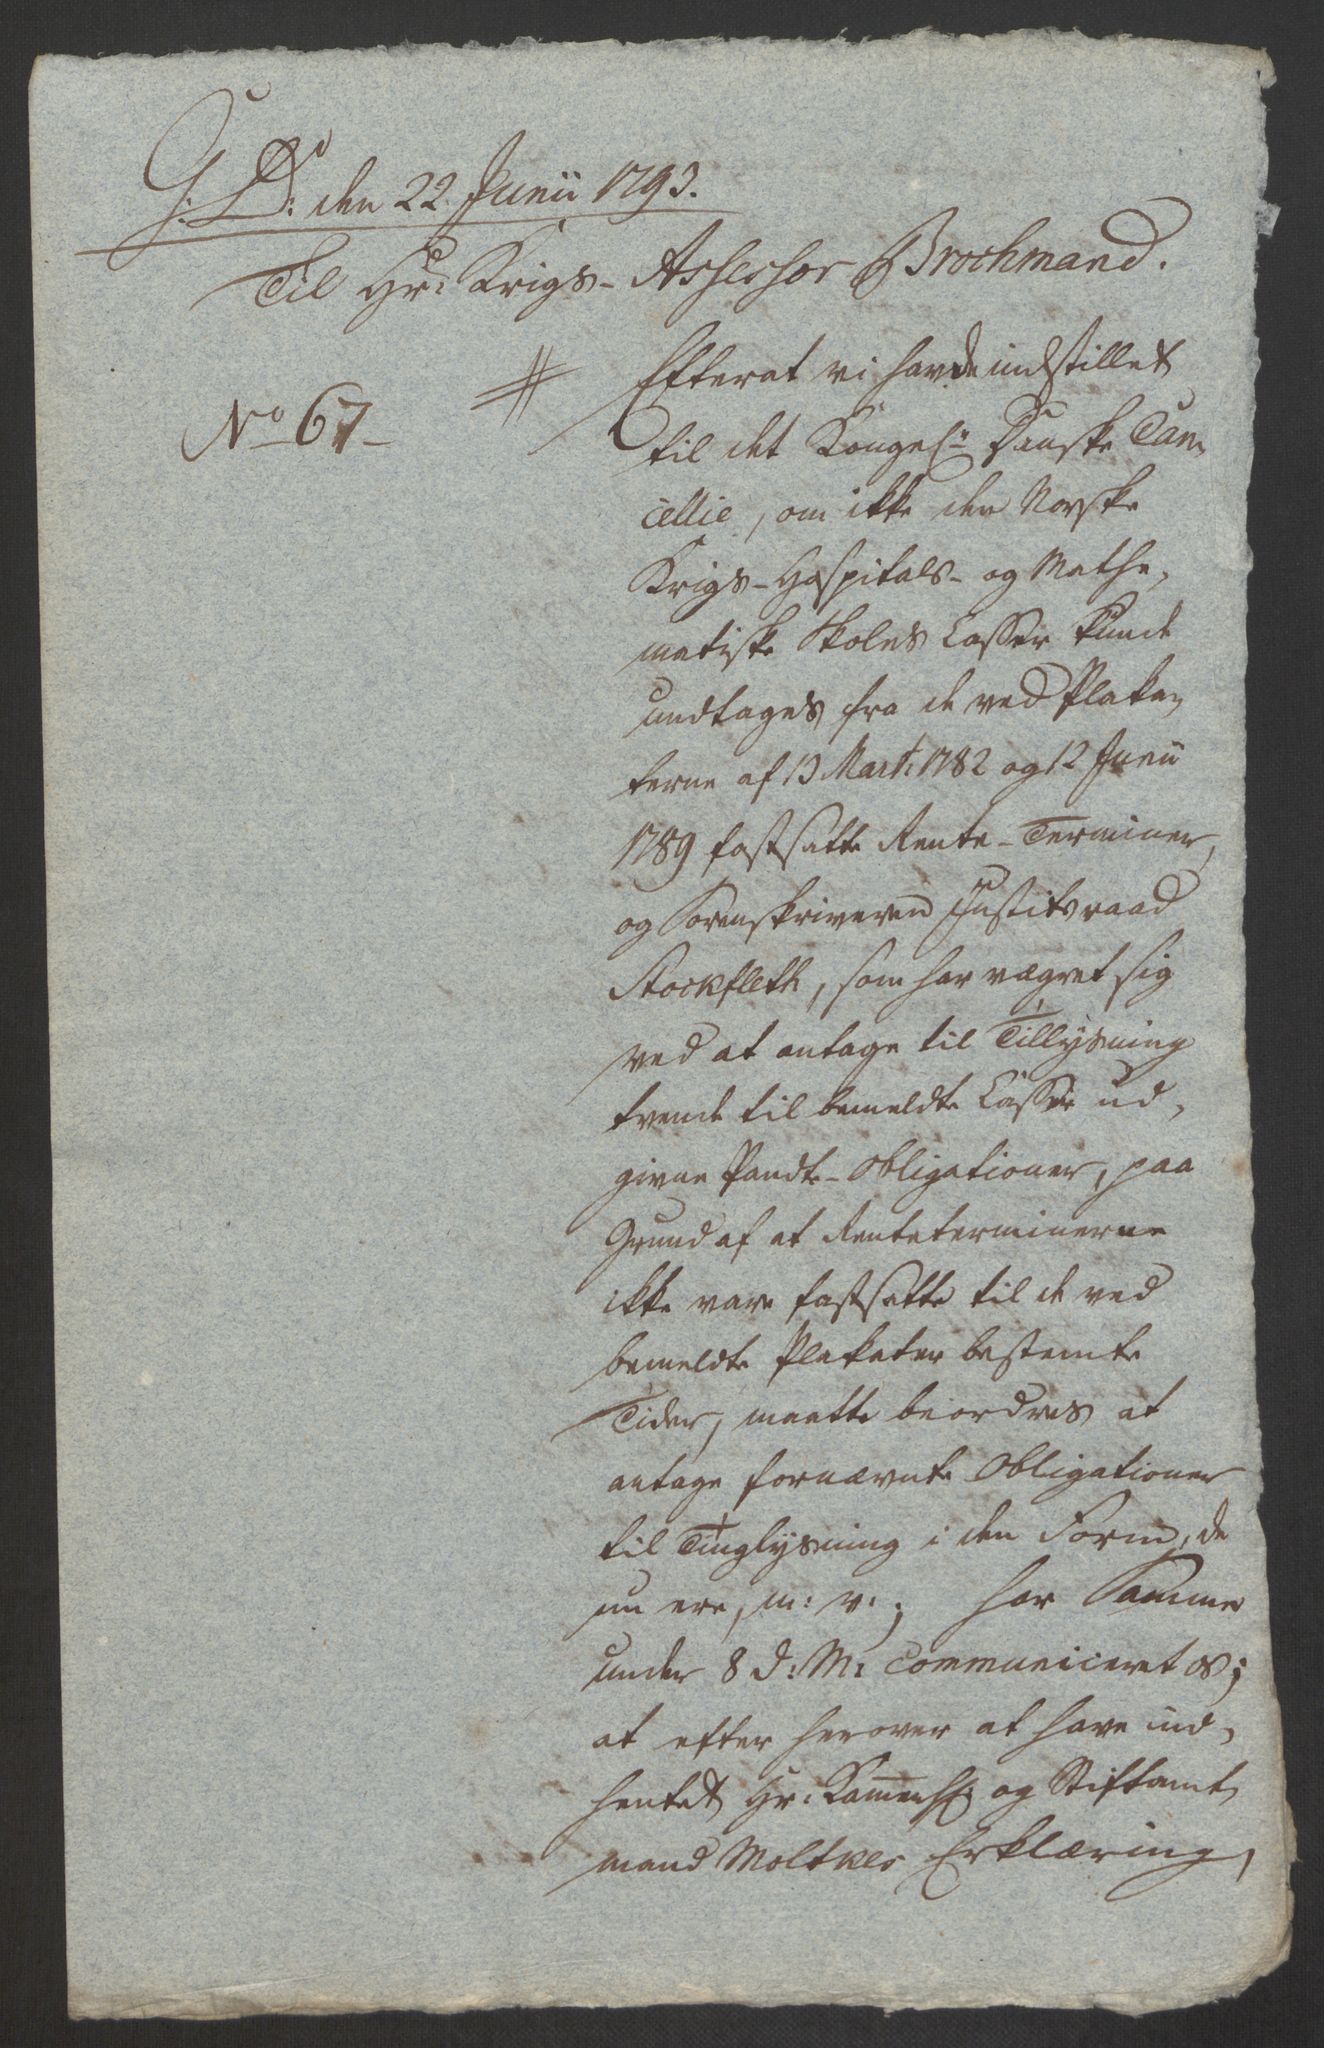 G: D: den 22 Junii 1793.
Til Hr: Krigs-Assessor Brochmand.
No 67
Efterat vi havde indstillet
til det Kongel: Danske Can-
cellie, om ikke den Norske
Krigs-Hospitals- og Mathe-
matiske Skoles Casser kunde
undtages fra de ved Placa-
terne af 13 Marti 1782 og 12 Junii
1789 fastsatte Rente-Terminer,
og Sorenskriveren Justitsraad
Stockfleth, som har vægret sig
ved at antage til Tillysning
trende til bemeldte Casser ud-
givne Pandte-Obligationer, paa
Grund af at Renteterminerne
ikke vare fastsatte til de ved
bemeldte Plakater bestemte
Tider, maatte beordres at
antage fornævnte Obligationer
til Tinglysning i den Form, de
nu ere, m: v:; har Samme
under 8 d: M: communiceret os;
at efter herover at have ind-
hentet Hr: Kammerh: og Stiftamt-
mand Moltkes Erklæring,